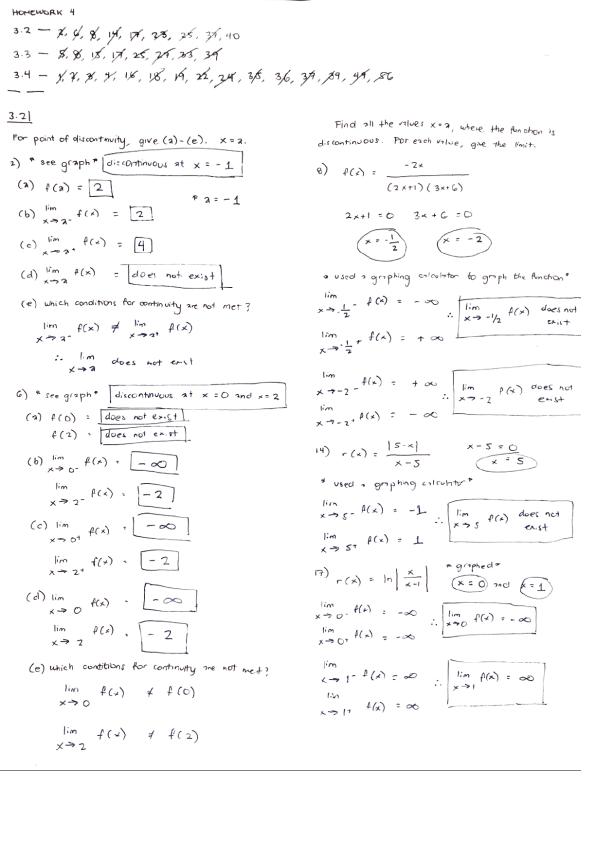 HOMEWORK 4
3.2 — 2, 6, 8, 14, 17, 23, 25, 31, 40
3.3 — 5, 8, 15, 17, 25, 29, 33, 39
3.4 — 1, 2, 3, 4, 15, 18, 19, 22, 24, 35, 36, 37, 39, 49, 56
3.2
For point of discontinuity, give (a)-(e). x=a.
2) *see graph* discontinuous at x = -1
(a) f(a) = 2
* a = -1
(b) lim x→a⁻ f(x) = 2
(c) lim x→a⁺ f(x) = 4
(d) lim x→a f(x) = does not exist
(e) which conditions for continuity are not met?
lim x→a⁻ f(x) ≠ lim x→a⁺ f(x)
∴ lim x→a does not exist
6) *see graph* discontinuous at x=0 and x=2
(a) f(0) = does not exist
f(2) = does not exist
(b) lim x→0⁻ f(x) = -∞
lim x→2⁻ f(x) = -2
(c) lim x→0⁺ f(x) = -∞
lim x→2⁺ f(x) = -2
(d) lim x→0 f(x) = -∞
lim x→2 f(x) = -2
(e) which conditions for continuity are not met?
lim x→0 f(x) ≠ f(0)
lim x→2 f(x) ≠ f(2)
Find all the values x=a, where the function is
discontinuous. For each value, give the limit.
8) f(x) = -2x / (2x+1)(3x+6)
2x+1=0 3x+6=0
x=-1/2 x=-2
* used a graphing calculator to graph the function*
lim x→-1/2⁻ f(x) = -∞
∴ lim x→-1/2 f(x) does not exist
lim x→-1/2⁺ f(x) = +∞
lim x→-2⁻ f(x) = +∞
∴ lim x→-2 f(x) does not exist
lim x→-2⁺ f(x) = -∞
14) r(x) = |5-x| / x-5
x-5=0
x=5
* used a graphing calculator*
lim x→5⁻ f(x) = -1
∴ lim x→5 f(x) does not exist
lim x→5⁺ f(x) = 1
17) r(x) = ln|x/x-1|
*graphed*
x=0 and x=1
lim x→0⁻ f(x) = -∞
∴ lim x→0 f(x) = -∞
lim x→0⁺ f(x) = -∞
lim x→1⁻ f(x) = ∞
∴ lim x→1 f(x) = ∞
lim x→1⁺ f(x) = ∞